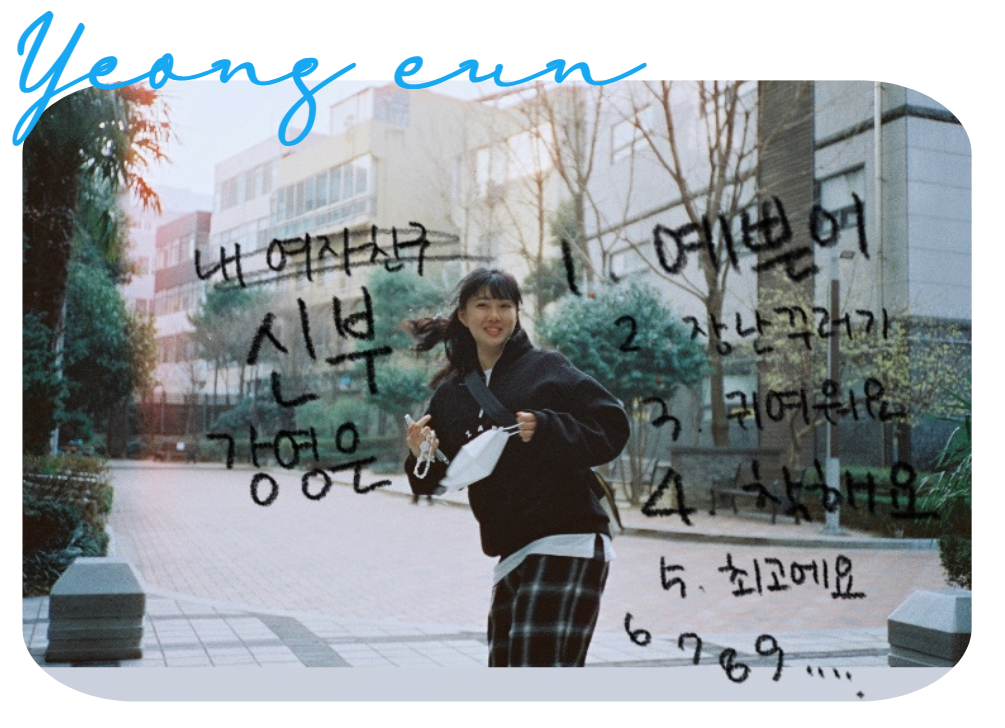 Yeong eun
내 여자친구
신부
강영은
1. 예쁜이
2 장난꾸러기
3. 귀여워요
4. 착해요
5. 최고에요
6 7 8 9 ....